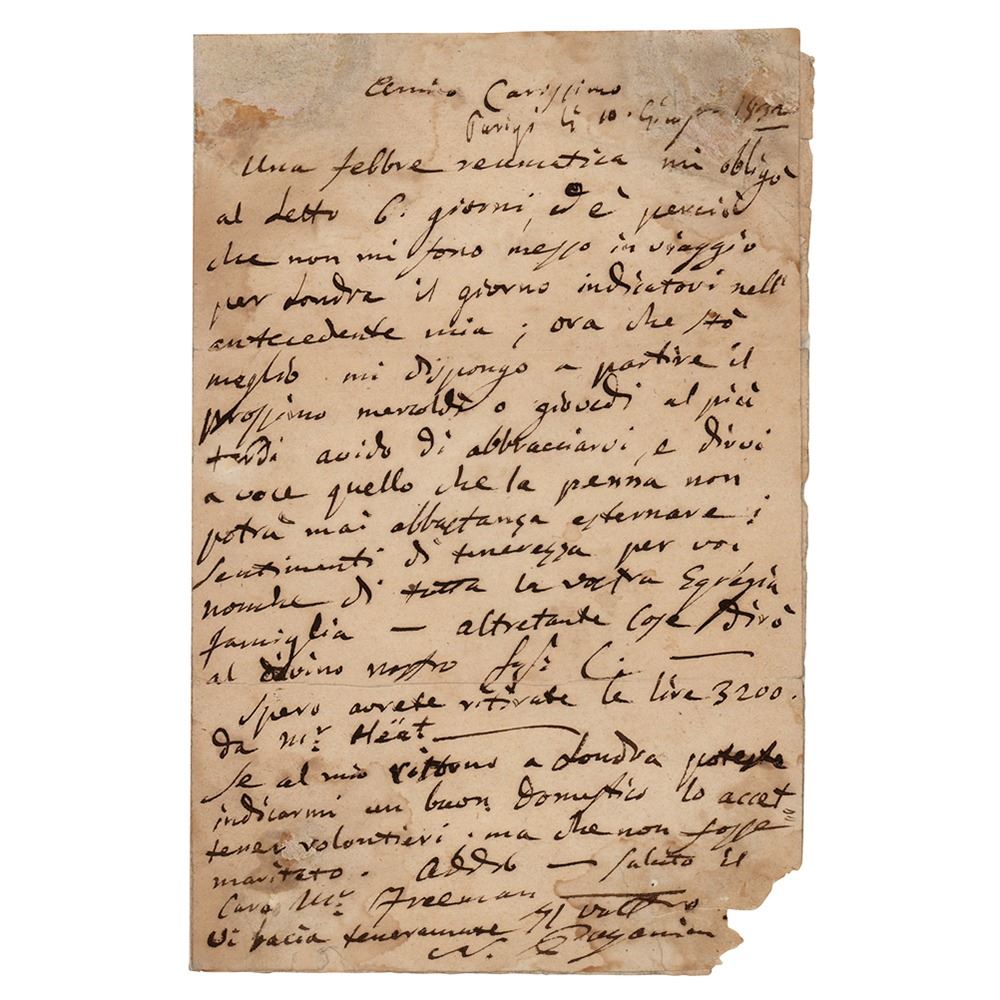 Amico Carissimo
Parigi li 10 Giugno 1832
Una febbre reumatica mi obligò
al Letto 6. giorni, ed è perciò
che non mi sono messo in viaggio
per Londra il giorno indicatovi nell'
antecedente mia ; ora che stò
meglio mi dispongo a partire il
prossimo mercoldì o giovedì al più
tardi avido di abbracciarvi, e dirvi
a voce quello che la penna non
potrà mai abbastanza esternare i
sentimenti di tenerezza per voi
nonche di tutta la vostra Egregia
famiglia — altretante cose dirò
al divino nostro Sigr. C. —
Spero avrete ritirate le lire 3200.
da Mr. Héat —
Se al mio ritorno a Londra poteste
indicarmi un buon domestico lo accet
terei volontieri . ma che non fosse
maritato . Addio — Saluto il
Caro Mr. Freeman —
Vi bacia teneramente Il vostro
N. Paganini